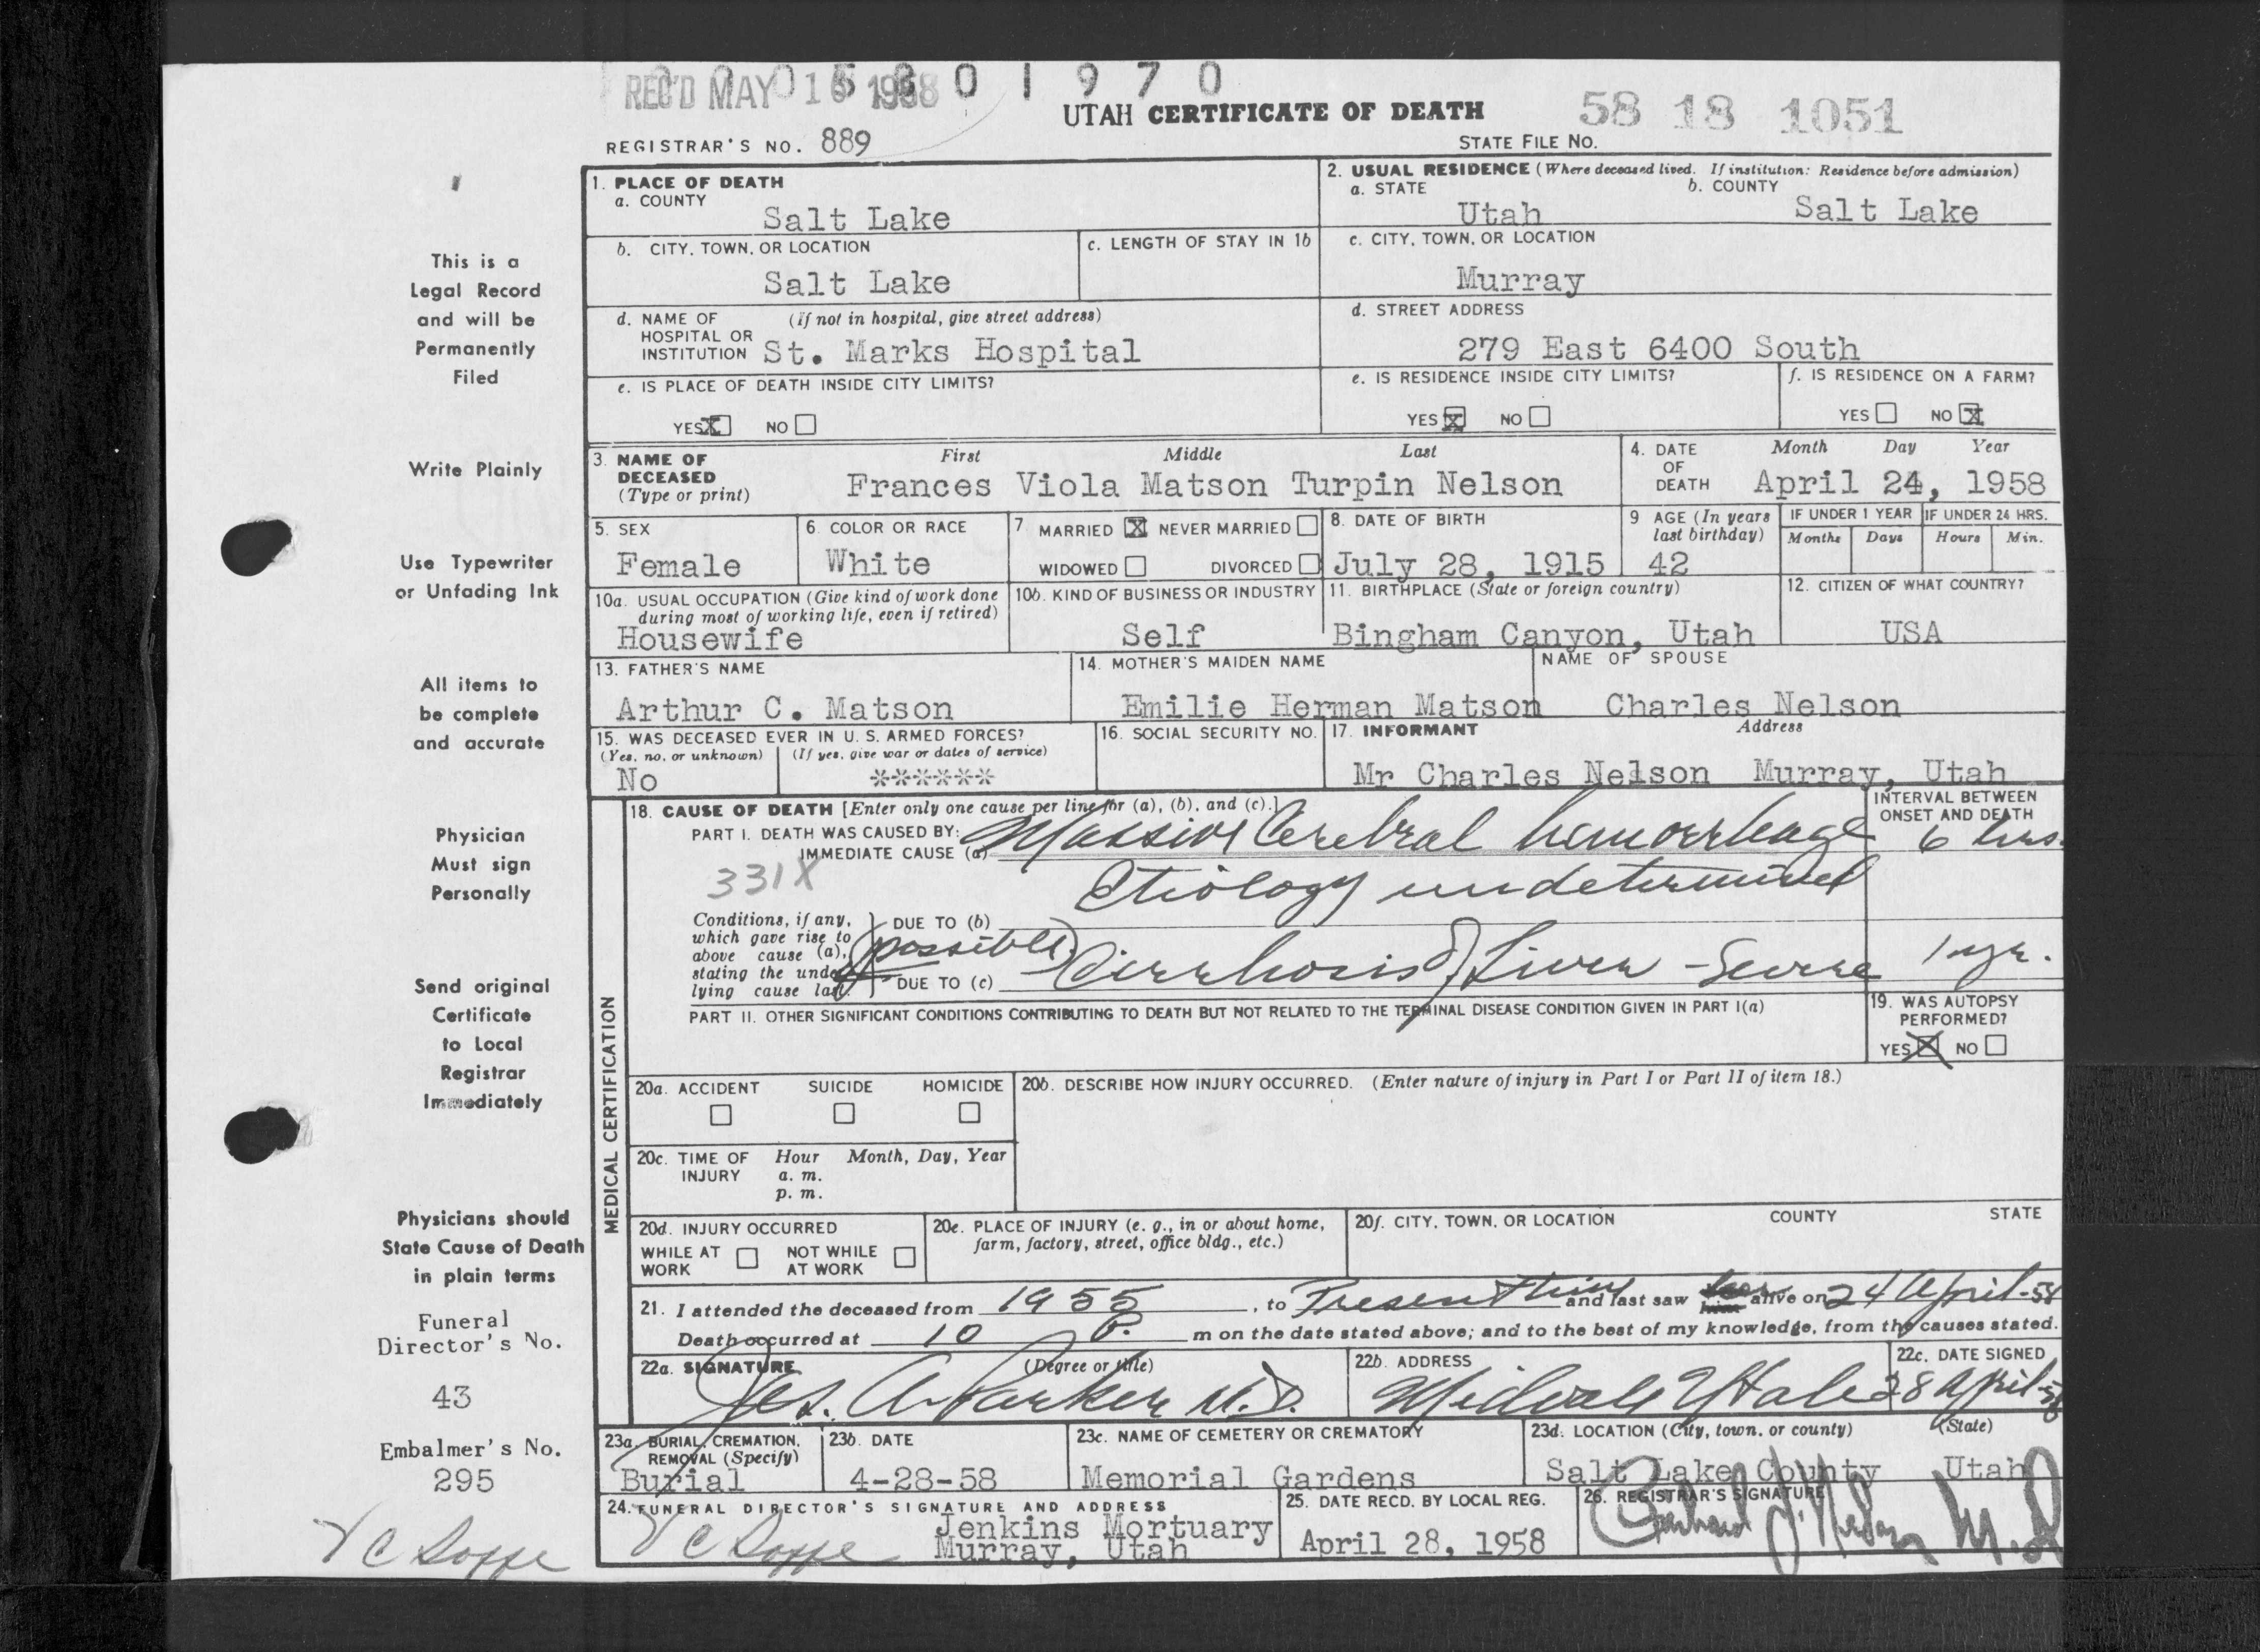 REC'D MAY 1 1958 0 1 9 7 0
UTAH CERTIFICATE OF DEATH 58 18 1051
REGISTRAR'S NO. 889 STATE FILE NO.
1. PLACE OF DEATH
a. COUNTY
Salt Lake
2. USUAL RESIDENCE (Where deceased lived. If institution: Residence before admission)
a. STATE b. COUNTY
Utah Salt Lake
b. CITY, TOWN, OR LOCATION
Salt Lake
c. LENGTH OF STAY IN 1b
c. CITY, TOWN, OR LOCATION
Murray
d. NAME OF HOSPITAL OR INSTITUTION (If not in hospital, give street address)
St. Marks Hospital
d. STREET ADDRESS
279 East 6400 South
e. IS PLACE OF DEATH INSIDE CITY LIMITS?
YES X NO
e. IS RESIDENCE INSIDE CITY LIMITS?
YES X NO
f. IS RESIDENCE ON A FARM?
YES NO X
3. NAME OF DECEASED (Type or print)
First Middle Last
Frances Viola Matson Turpin Nelson
4. DATE OF DEATH
Month Day Year
April 24, 1958
5. SEX
Female
6. COLOR OR RACE
White
7 MARRIED X NEVER MARRIED
WIDOWED DIVORCED
8. DATE OF BIRTH
July 28, 1915
9 AGE (In years last birthday)
42
IF UNDER 1 YEAR IF UNDER 24 HRS.
Months Days Hours Min.
10a. USUAL OCCUPATION (Give kind of work done during most of working life, even if retired)
Housewife
10b. KIND OF BUSINESS OR INDUSTRY
Self
11. BIRTHPLACE (State or foreign country)
Bingham Canyon, Utah
12. CITIZEN OF WHAT COUNTRY?
USA
13. FATHER'S NAME
Arthur C. Matson
14. MOTHER'S MAIDEN NAME
Emilie Herman Matson
NAME OF SPOUSE
Charles Nelson
15. WAS DECEASED EVER IN U. S. ARMED FORCES?
(Yes, no, or unknown) (If yes, give war or dates of service)
No ******
16. SOCIAL SECURITY NO.
17. INFORMANT Address
Mr Charles Nelson Murray, Utah
MEDICAL CERTIFICATION
18. CAUSE OF DEATH [Enter only one cause per line for (a), (b), and (c).]
PART I. DEATH WAS CAUSED BY:
IMMEDIATE CAUSE (a) Massive Cerebral hemorrhage
INTERVAL BETWEEN ONSET AND DEATH
6 hrs.
331X
Etiology undetermined
Conditions, if any, which gave rise to above cause (a), stating the underlying cause last.
DUE TO (b)
(possible)
DUE TO (c) Cirrhosis of Liver - Severe 1 yr.
PART II. OTHER SIGNIFICANT CONDITIONS CONTRIBUTING TO DEATH BUT NOT RELATED TO THE TERMINAL DISEASE CONDITION GIVEN IN PART I(a)
19. WAS AUTOPSY PERFORMED?
YES X NO
20a. ACCIDENT SUICIDE HOMICIDE
20b. DESCRIBE HOW INJURY OCCURRED. (Enter nature of injury in Part I or Part II of item 18.)
20c. TIME OF INJURY Hour Month, Day, Year
a. m.
p. m.
20d. INJURY OCCURRED
WHILE AT WORK NOT WHILE AT WORK
20e. PLACE OF INJURY (e. g., in or about home, farm, factory, street, office bldg., etc.)
20f. CITY, TOWN, OR LOCATION COUNTY STATE
21. I attended the deceased from 1955, to Present time and last saw her him alive on 24 April-58
Death occurred at 10 P. m on the date stated above; and to the best of my knowledge, from the causes stated.
22a. SIGNATURE (Degree or title)
Jas. A. Parker M.D.
22b. ADDRESS
Midvale Utah
22c. DATE SIGNED
28 April-58
23a. BURIAL, CREMATION, REMOVAL (Specify)
Burial
23b. DATE
4-28-58
23c. NAME OF CEMETERY OR CREMATORY
Memorial Gardens
23d. LOCATION (City, town, or county) (State)
Salt Lake County Utah
24. FUNERAL DIRECTOR'S SIGNATURE AND ADDRESS
Jenkins Mortuary
Murray, Utah
25. DATE RECD. BY LOCAL REG.
April 28, 1958
26. REGISTRAR'S SIGNATURE
M.D
This is a
Legal Record
and will be
Permanently
Filed
Write Plainly
Use Typewriter
or Unfading Ink
All items to
be complete
and accurate
Physician
Must sign
Personally
Send original
Certificate
to Local
Registrar
Immediately
Physicians should
State Cause of Death
in plain terms
Funeral
Director's No.
43
Embalmer's No.
295